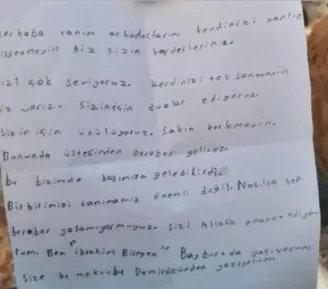 erhaba canım arkadaşlarım kendinizi yanlız
issetmeyin biz sizin kardeşleriniz.
izi çok seviyoruz. kendinizi tek sanmayın
iz varız. Sizin için dualar ediyoruz
Sizin için üzülüyoruz. Sakın korkmayın.
Bununda üstesinden beraber gelicez.
bu bizimde başımıza gelebilirdi
Birbirimizi tanımamız önemli değil. Nasılsa hep
beraber yaşamıyormuyuz. Sizi Allaha emanet ediyo
rum. Ben "ibrahim" Bayburtda yaşıyorum
size bu mektubu Demirözünden yazıyorum.